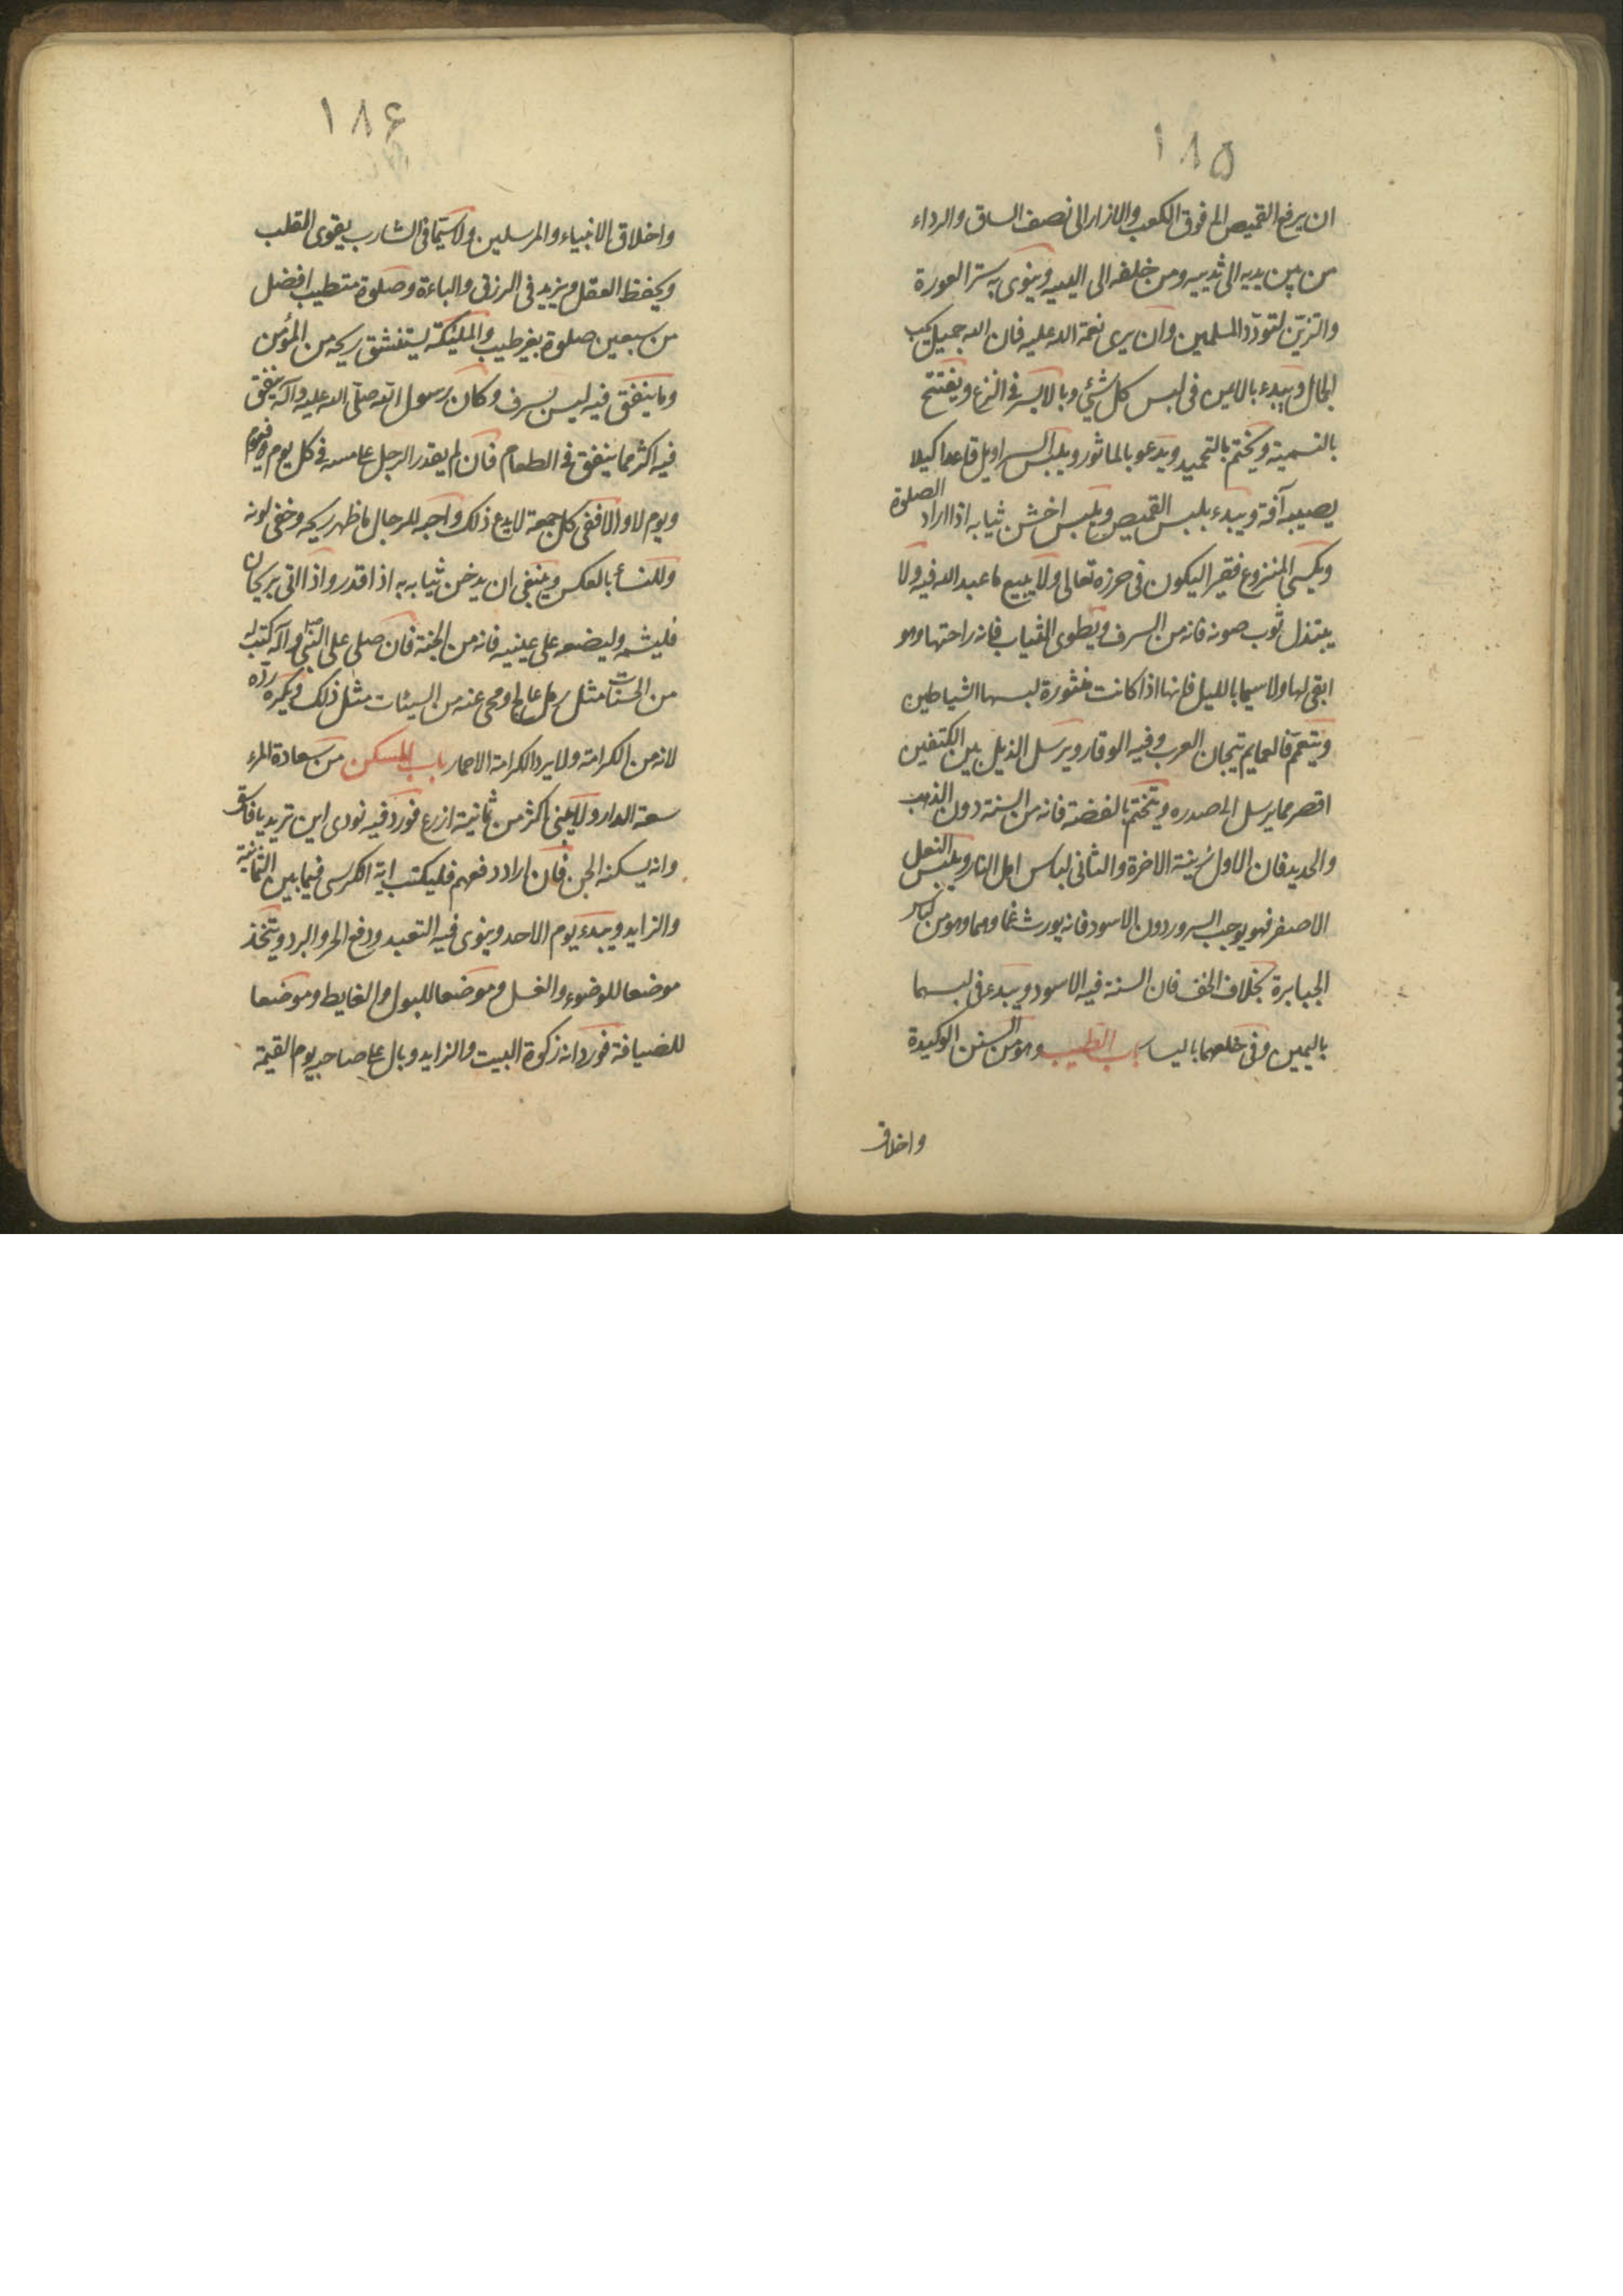 ١٨۵
ان يرفع القميص الى فوق الكعب والازار الى نصف الساق والرداء
من بين يديه الى ثدييه ومن خلفه الى اليييه وينوى به ستر العورة
والتزين لتودّد المسلمين وان يرى نعمة الله عليه فان الله جميل يحب
الجمال ويبدء بالايمن فى لبس كل شئ وبالايسر فى النزع ويفتتح
بالتسمية ويختم بالتحميد ويدعو بالماثور ويلبس السراويل قاعدا كيلا
يصيبه آفة ويبدء بلبس القميص ويلبس اخشن ثيابه اذا اراد الصلوة
ويكسى المنزوع فقيرا ليكون فى حرزه تعالى ولا يبيع ما عبد الله فيه ولا
يبتذل ثوب صونه فانه من السرف ويطوى الثياب فانه راحتها وهو
ابقى لها ولا سيما بالليل فانها اذا كانت منثورة لبسها الشياطين
ويتعمّم فالعمايم تيجان العرب وفيه الوقار ويرسل الذيل بين الكتفين
اقصر مما يرسل الى صدره ويتختم بالفضة فانه من السنة دون الذهب
والحديد فان الاول زينة الاخرة والثانى لباس اهل النار ويلبس النعل
الاصفر فهو يوجب السرور دون الاسود فانه يورث غما وهما وهو من لباس
الجبابرة بخلاف الخف فان السنة فيه الاسود ويبدء فى لبسهما
باليمين وفى خلعهما باليسار باب التطيب وهو من السنن الوكيدة
واخلاق
١٨۶
واخلاق الانبياء والمرسلين ولا سيّما فى الشارب يقوى القلب
ويحفظ العقل ويزيد فى الرزق والباءة وصلوة متطيب افضل
من سبعين صلوة بغير طيب والملئكة يستنشق ريحه من المؤمن
وما ينفق فيه ليس بسرف وكان رسول الله صلّى الله عليه وآله ينفق
فيه اكثر مما ينفق فى الطعام فان لم يقدر الرجل على مسه فى كل يوم فيوم
ويوم لا والا ففى كل جمعة لا يدع ذلك واحبه للرجال ما ظهر ريحه وخفى لونه
وللنسأ بالعكس وينبغى ان يدخن ثيابه به اذا قدر واذا اتى بريحان
فليشمه وليضعه على عينيه فانه من الجنة فان صلى على النبى وآله كتب له
من الحسنات مثل رمل عالج ومحى عنه من السيئات مثل ذلك ويكره ردّه
لانه من الكرامة ولا يرد الكرامة الا حمار باب المسكن من سعادة المرء
سعة الدار ولا يبنى اكثر من ثمانية ازرع فورد فيه نودى اين تريد يا فاسق
وانه يسكنه الجن فان اراد دفعهم فليكتب اية الكرسى فيما بين الثمانية
والزايد ويبدء يوم الاحد وينوى فيه التعبد ودفع الحر والبرد ويتخذ
موضعا للوضوء والغسل وموضعا للبول والغايط وموضعا
للضيافة فورد انه زكوة البيت والزايد وبال على صاحبه يوم القيمة